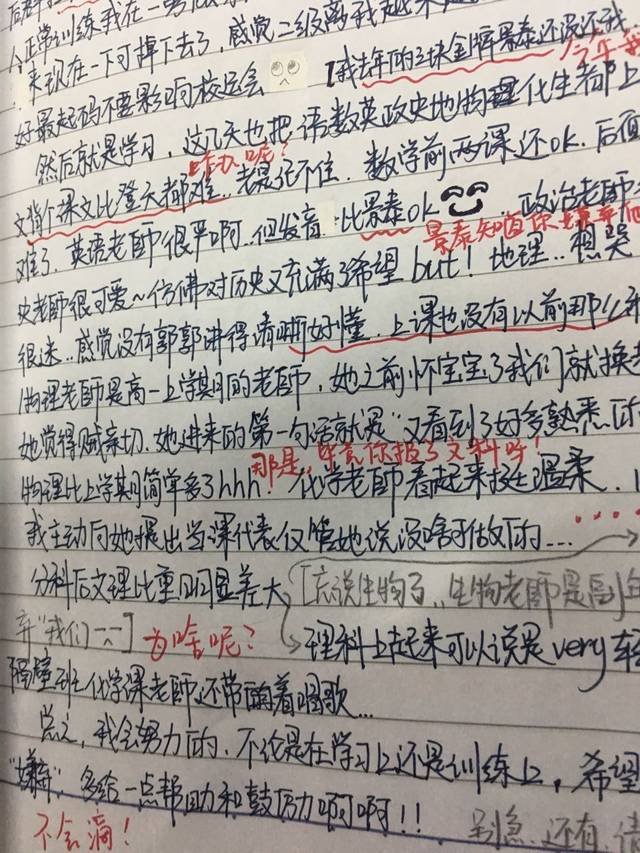 正常训练我在一
来现在一下可掉下去了，感觉二级离我越来
好最起码不要影响校运会 【我去年的3块金牌景泰还没还我
今年
然后就是学习，这几天也把语数英政史地物理化生都上
咋办呢？
文背个课文比登天都难。老是记不住．数学前两课还OK．后面
难了．英语老師很严啊..但发音比景泰OK 政治老师
景泰知道你
史老師很可爱～仿佛对历史又充满了希望but！地理..想哭
很迷..感觉没有郭郭讲得清晰好懂．上课也没有以前那么
物理老師是高一上学期的老師，她之前怀宝宝了我们就换
她觉得贼亲切．她进来的第一句话就是"又看到了好多熟悉的
那是，毕竟你报了文科呀！
物理比上学期简单多了hhh！化学老師看起来挺温柔．
我主动向她提出当课代表仅管她说没啥可做的....
分科后文理比重明显差大 [忘说生物了..生物老師是副
弃"我们 ] 为啥呢？ 理科上起来可以说是very轻
隔壁班化学课老師还带酶着唱歌...
总之，我会努力的．不论是在学习上还是训练上，希望
"嫌弃"，多给一点帮助和鼓励啊啊！！
不会滴！ 别急．还有．请